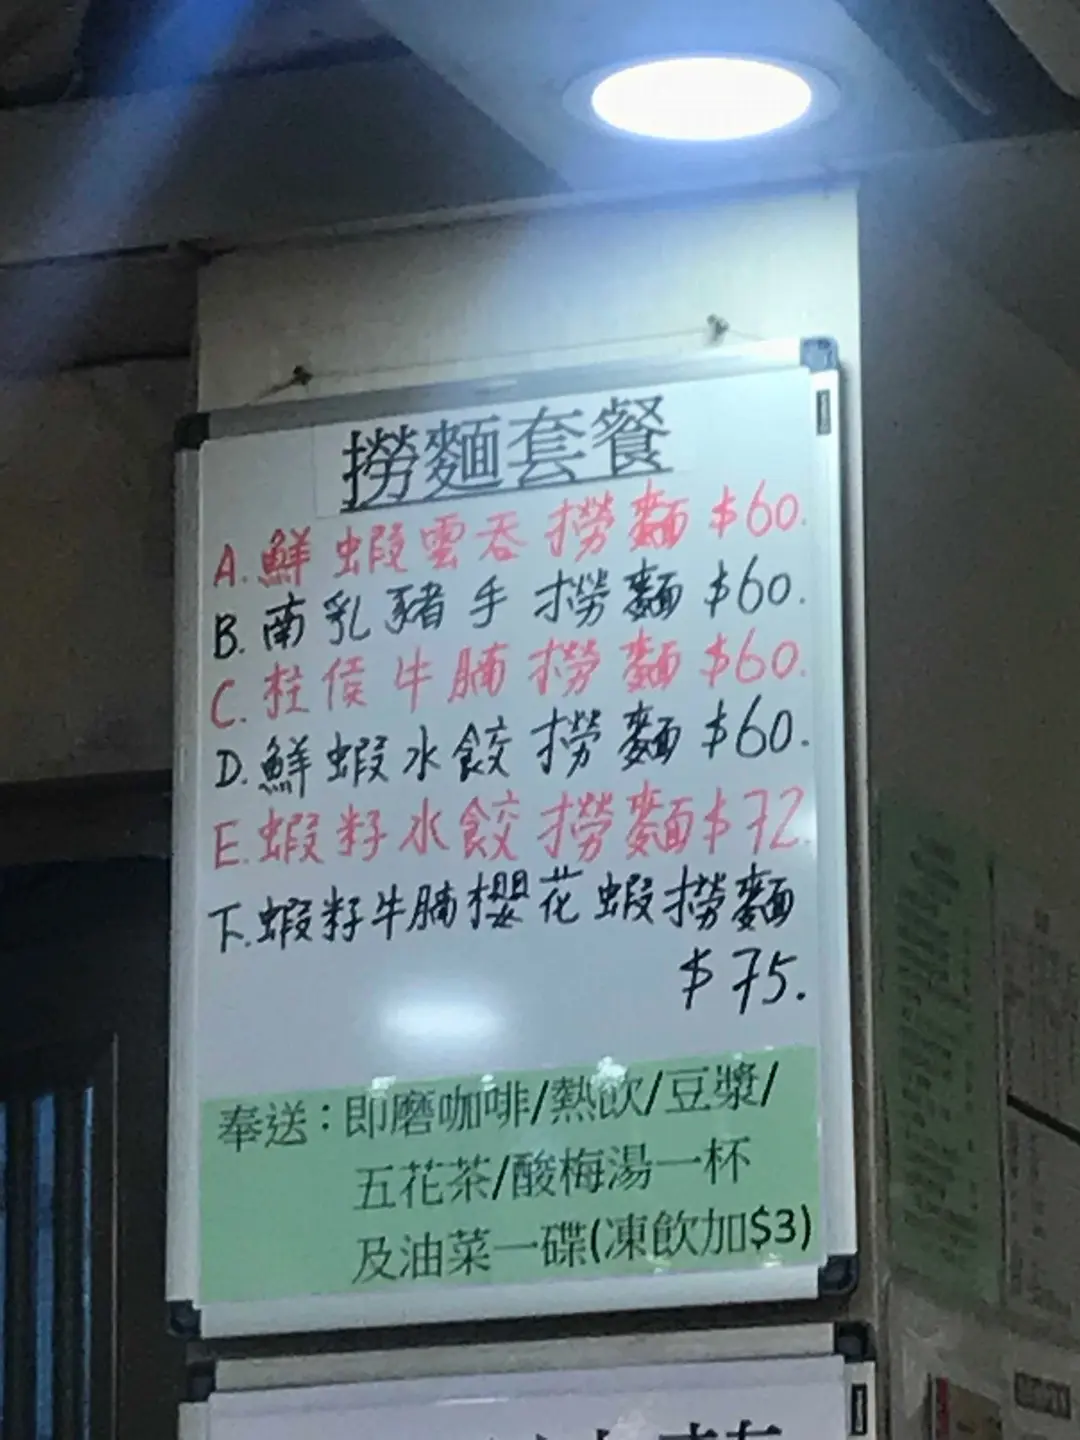 撈麵套餐
A. 鮮蝦雲吞撈麵 $60.
B. 南乳豬手撈麵 $60.
C. 柱侯牛腩撈麵 $60.
D. 鮮蝦水餃撈麵 $60.
E. 蝦籽水餃撈麵 $72.
F. 蝦籽牛腩櫻花蝦撈麵
$75.
奉送：即磨咖啡/熱飲/豆漿/
五花茶/酸梅湯一杯
及油菜一碟(凍飲加$3)